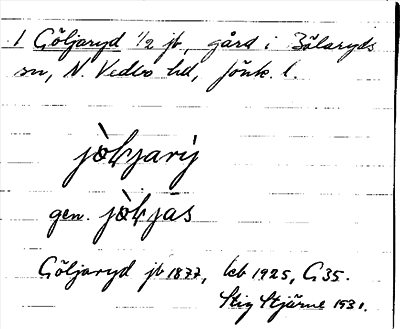 1 Göljaryd 1/2 jb, gård i Bälaryds
sn, N. Vedbo hd, Jönk. l.
jòljarý
gen. jòljas
Göljaryd jb 1877, lcb 1925, G35.
Stig Stjärne 1931.